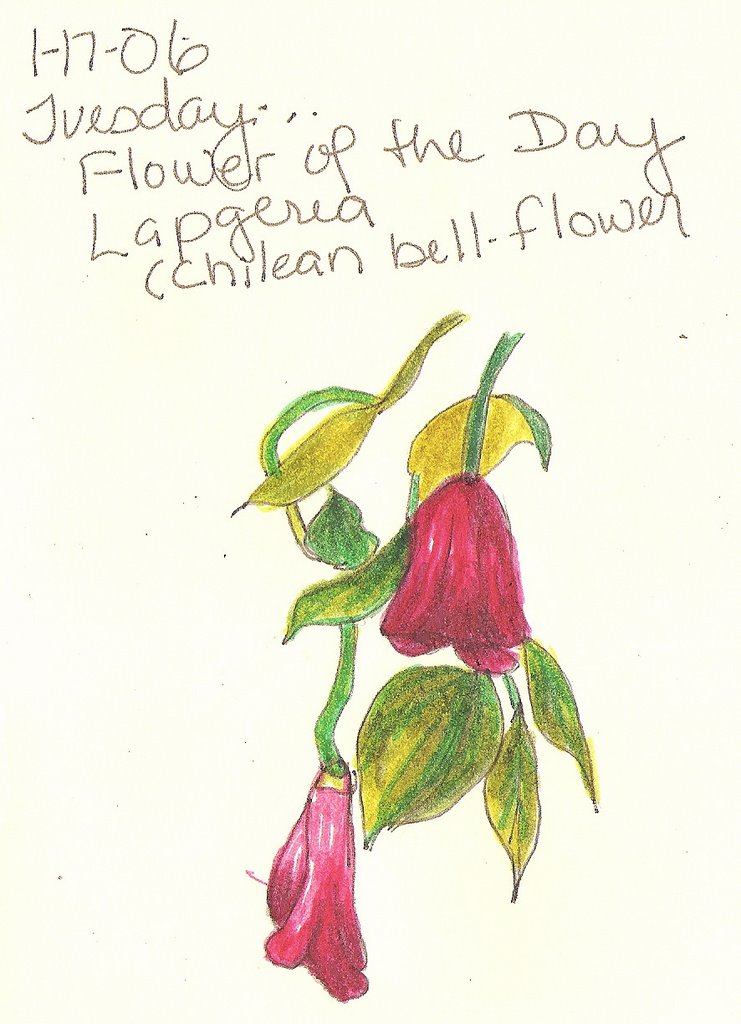 1-17-06
Tuesday...
Flower of the Day
Lapgeria
(Chilean bell-flower